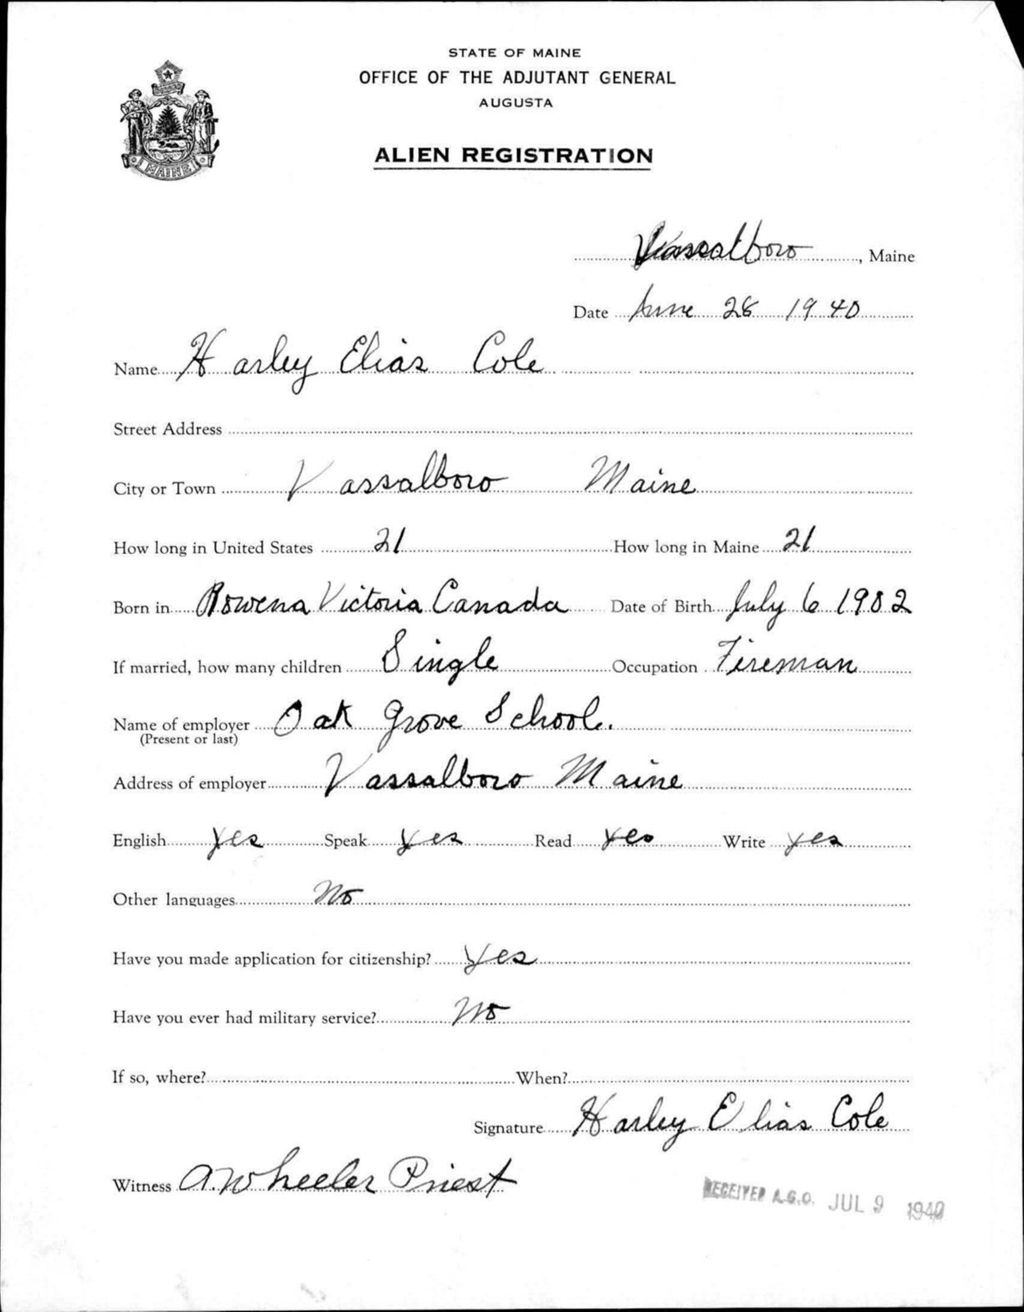 STATE OF MAINE
OFFICE OF THE ADJUTANT GENERAL
AUGUSTA
ALIEN REGISTRATION
MAINE
Vassalboro, Maine
Date June 28 1940
Name Harley Elias Cole
Street Address
City or Town Vassalboro Maine
How long in United States 21 How long in Maine 21
Born in Rowena Victoria Canada Date of Birth July 6 1902
If married, how many children Single Occupation Fireman
Name of employer Oak Grove School.
(Present or last)
Address of employer Vassalboro Maine
English Yes Speak Yes Read Yes Write Yes
Other languages No
Have you made application for citizenship? Yes
Have you ever had military service? No
If so, where? When?
Signature Harley Elias Cole
Witness A. Wheeler Priest
RECEIVED A.G.O. JUL 9 1940